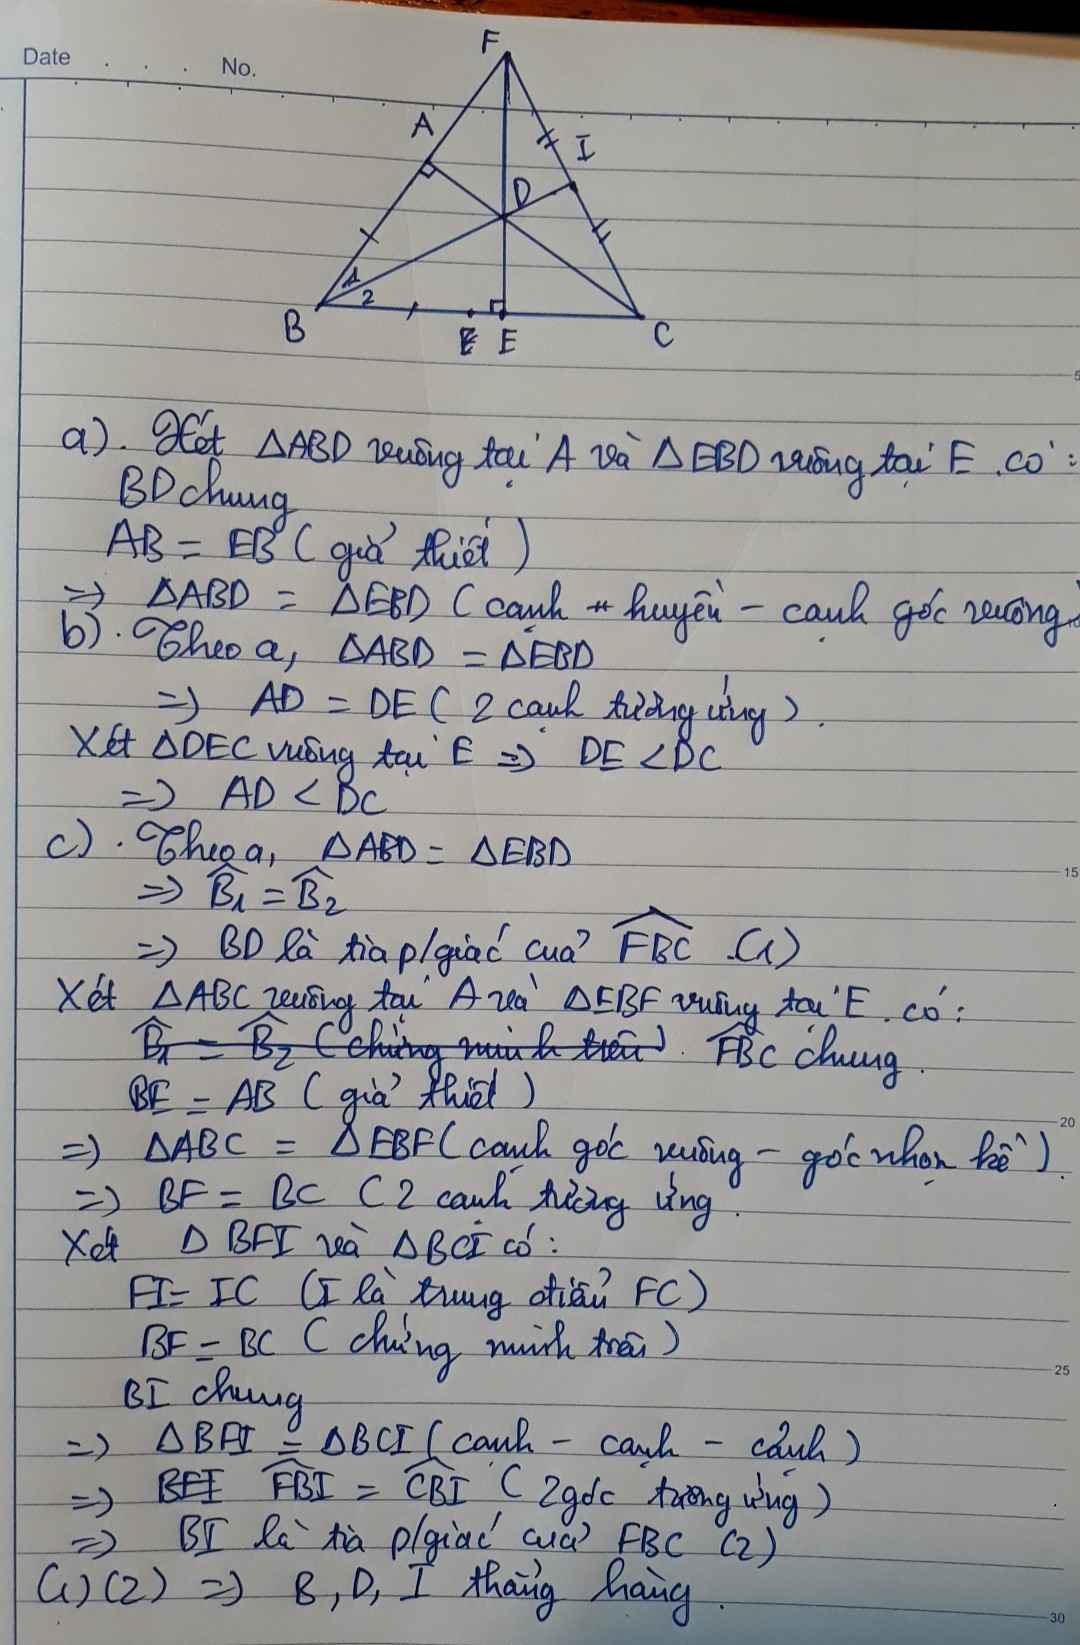 Date . . . No.
F
A
I
D
1
2
B
E
C
5
a). Xét ΔABD vuông tại A và ΔEBD vuông tại E có:
BD chung
AB = EB (giả thiết)
=> ΔABD = ΔEBD (cạnh huyền - cạnh góc vuông)
b). Theo a, ΔABD = ΔEBD
=> AD = DE (2 cạnh tương ứng).
Xét ΔDEC vuông tại E => DE < DC
=> AD < DC
c). Theo a, ΔABD = ΔEBD
15
=> B̂1 = B̂2
=> BD là tia p/giác của FBC (1)
Xét ΔABC vuông tại A và ΔEBF vuông tại E có:
B̂1 = B̂2 (chứng minh trên). FBC chung.
BE = AB (giả thiết)
20
=> ΔABC = ΔEBF (cạnh góc vuông - góc nhọn kề).
=> BF = BC (2 cạnh tương ứng.
Xét ΔBFI và ΔBCI có:
FI = IC (I là trung điểm FC)
BF = BC (chứng minh trên)
25
BI chung
=> ΔBFI = ΔBCI (cạnh - cạnh - cạnh)
=> BFI FBI = CBI (2 góc tương ứng)
=> BI là tia p/giác của FBC (2)
(1)(2) => B, D, I thẳng hàng.
30